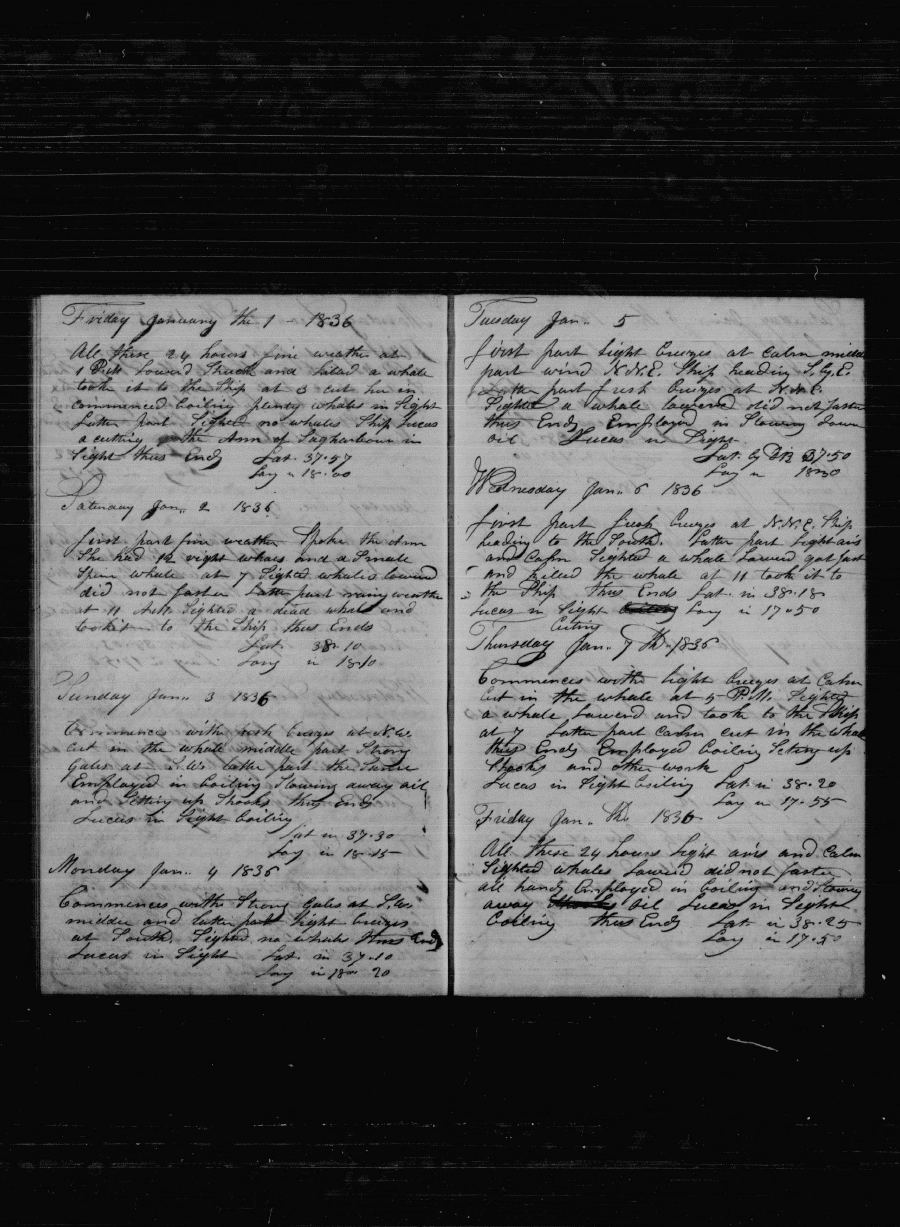 Friday January the 1 - 1836
All these 24 hours fine weather at
1 P.M. Lowerd Struck and killed a whale
took it to the Ship at 3 cut her in
commenced boiling plenty whales in Sight
Latter part Sighted no whales Ship Lucas
a cutting the Ann of Sagharbour in
Sight thus Ends Lat. 37.57
Long in 18.00
Saturday Jan.. 2 1836
first part fine weather Spoke the Ann
She had 12 right whales and a Small
Sperm whale at 7 Sighted whales lowerd
did not fasten Latter part rainy weather
at 11 A.M. Sighted a dead whale and
took it to the Ship thus Ends
Lat. 38.10
Long in 18.10
Sunday Jan.. 3 1836
Commences with fresh breezes at N.W.
cut in the whale middle part Strong
gales at S.W. latter part the Same
Employed in boiling Stowing away oil
and Setting up Shooks thus Ends
Lucas in Sight boiling
Lat in 37.30
Long in 18.15
Monday Jan.. 4 1836
Commences with Strong gales at S.W.
middle and latter part light breezes
at South. Sighted no whales thus Ends
Lucas in Sight Lat. in 37.10
Long in 18 20
Tuesday Jan.. 5
first part light breezes at calm middle
part wind N.N.E. Ship heading
Latter part fresh breezes at N.N.E.
Sighted a whale lowered did not fasten
thus Ends Employed in Stowing down
oil Lucas in Sight
Lat. by 37.50
Long in 18
Wednesday Jan.. 6 1836
first part fresh breezes at N.N.E. Ship
heading to the South. Latter part Light airs
and Calm Sighted a whale Lowerd got fast
and killed the whale at 11 took it to
the Ship thus Ends Lat. in 38.18
Lucas in Sight Long in 17.50
Cutting
Thursday Jan.. 7 Th. 1836
Commences with light breezes at Calm
Cut in the whale at 4 P.M. Sighted
a whale Lowerd and took to the Ship
at 7 Latter part calm cut in the whale
thus Ends Employed boiling Setting up
Shooks and other work
Lucas in Sight boiling Lat in 38.20
Long in 17.55
Friday Jan.. th. 1836
All these 24 hours light airs and Calm
Sighted whales Lowerd did not fasten
all hands Employed in boiling and Stowing
away oil Lucas in Sight
boiling thus Ends Lat in 38.25
Long in 17.50